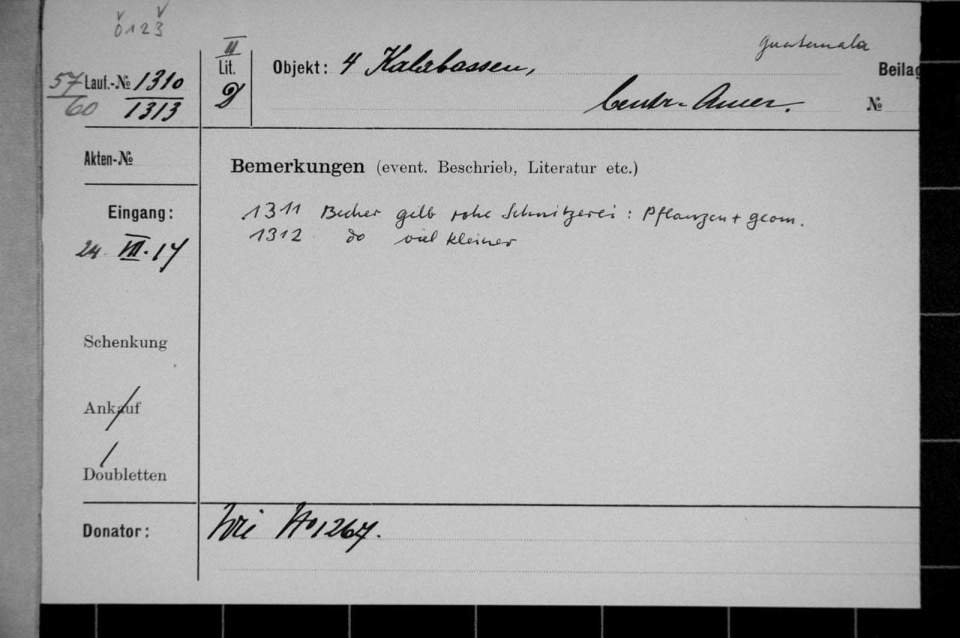 0 1 2 3
Guatemala
57 Lauf.-№ 1310
60 1313
II
Lit.
D
Objekt: 4 Kalabassen,
Centr. Amer.
Beilag
№
Akten-№
Bemerkungen (event. Beschrieb, Literatur etc.)
Eingang:
24. VII. 17
1311 Becher gelb rohe Schnitzerei: Pflanzen + geom.
1312 do viel kleiner
Schenkung
Ankauf
Doubletten
Donator: Wie No 1267.